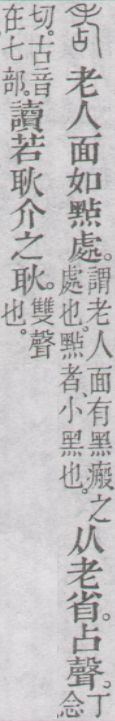 老人面如點處。謂老人面有黑瘢之處也。點者、小黑也。从老省。占聲。丁念
切。古音在七部。讀若耿介之耿。雙聲也。